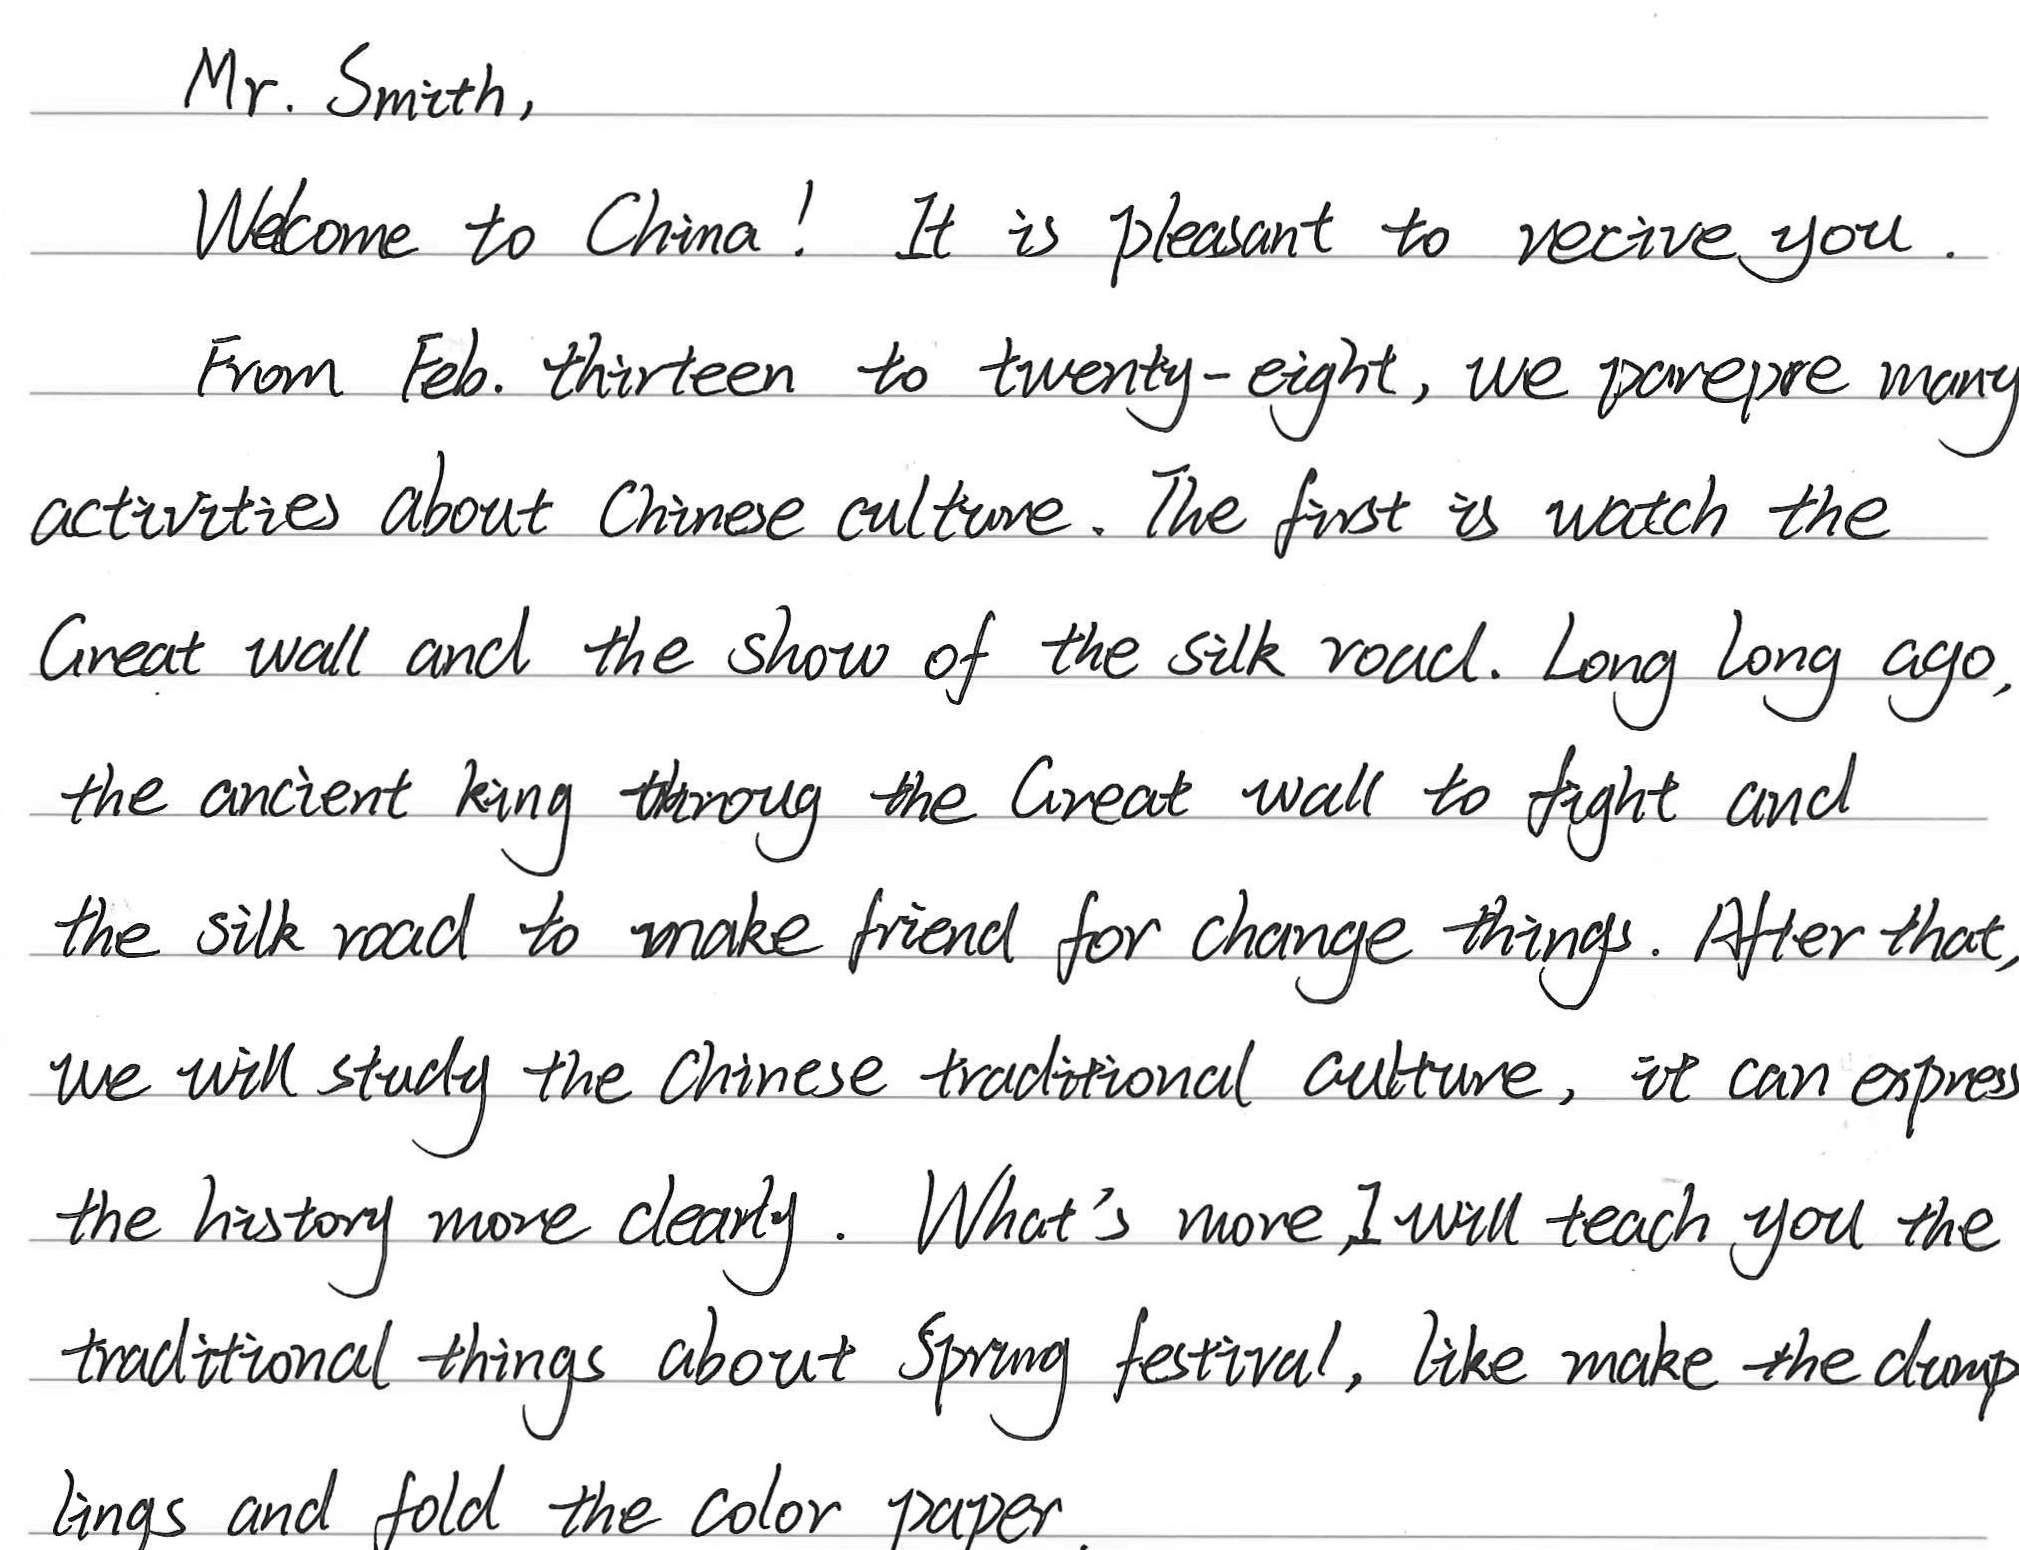 Mr. Smith,
Welcome to China! It is pleasant to recive you.
From Feb. thirteen to twenty-eight, we parepre many
activities about Chinese culture. The first is watch the
Great wall and the show of the silk road. Long long ago,
the ancient king throug the Great wall to fight and
the silk road to make friend for change things. After that,
we will study the Chinese traditional culture, it can express
the history more clearly. What's more, I will teach you the
traditional things about Spring festival, like make the dump
lings and fold the color paper.